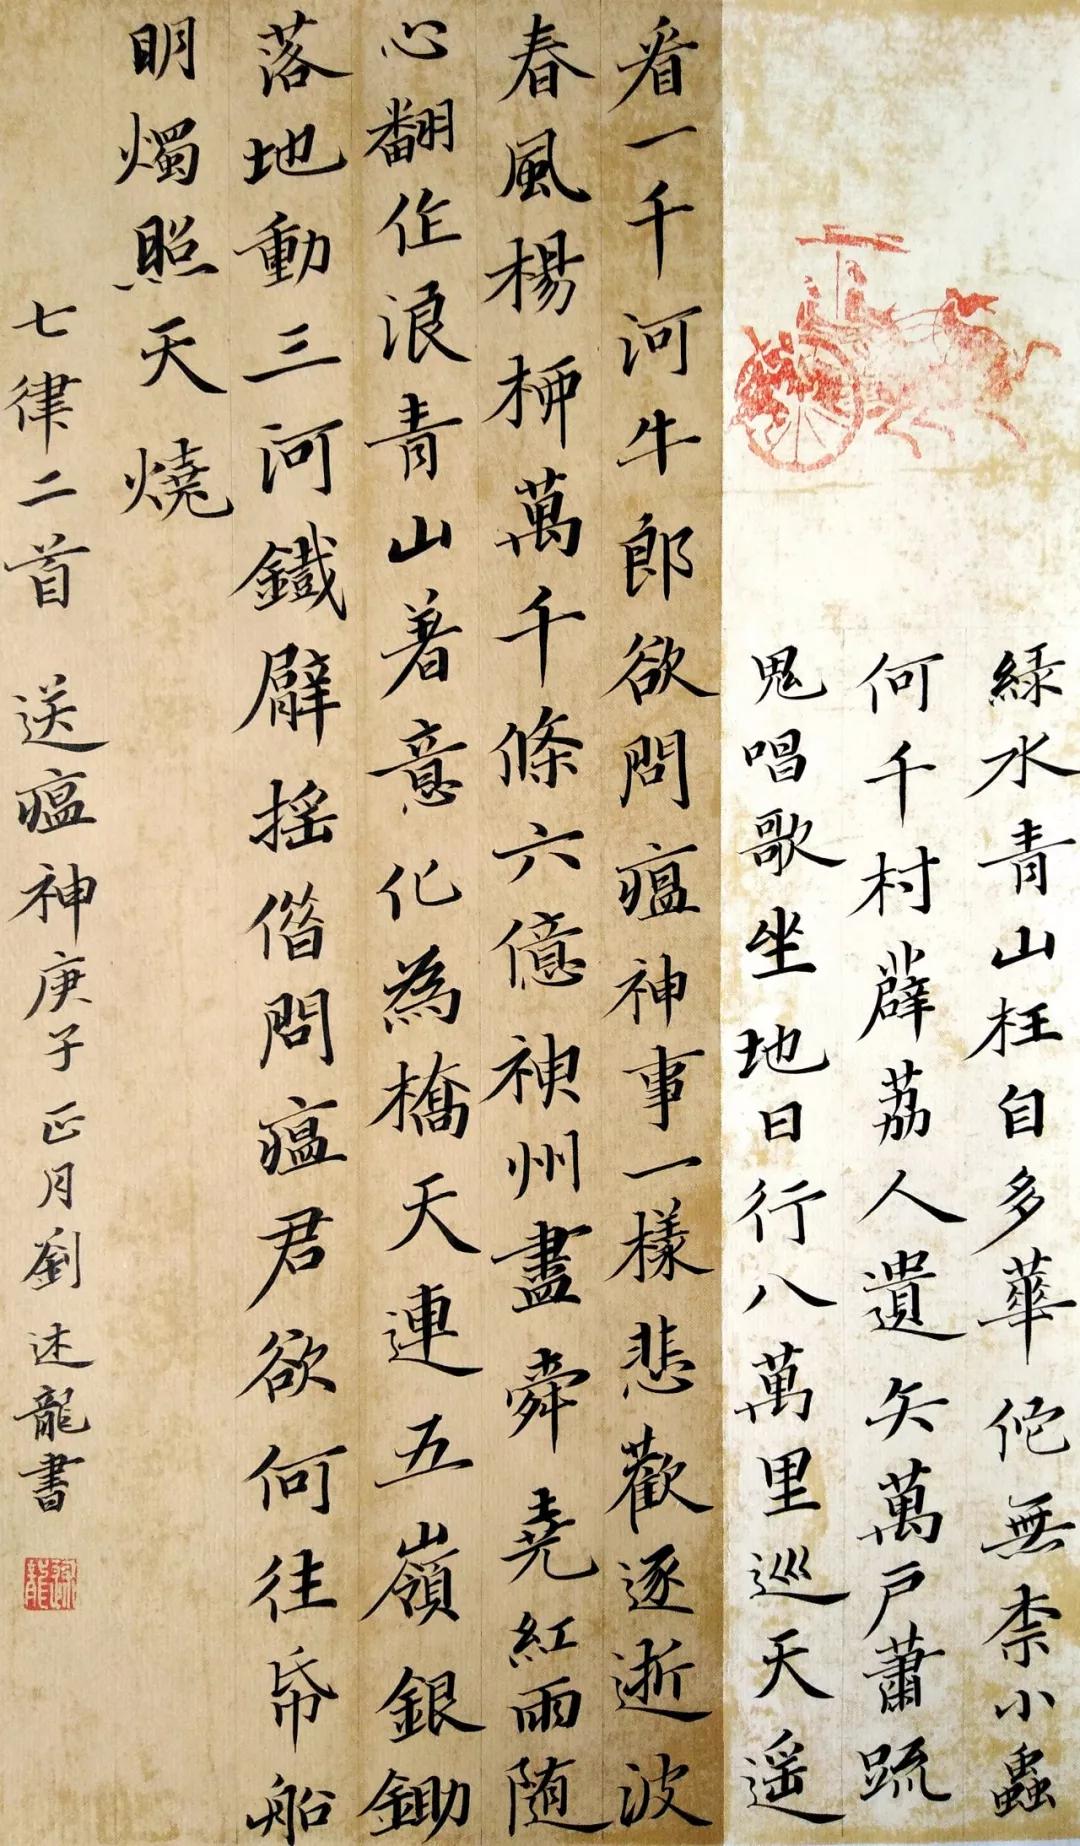 綠水青山枉自多華佗無柰小蟲
何千村薜荔人遺矢萬戶蕭疏
鬼唱歌坐地日行八萬里巡天遥
看一千河牛郎欲問瘟神事一樣悲歡逐逝波
春風楊柳萬千條六億神州盡舜堯紅雨随
心翻作浪青山着意化為橋天連五嶺銀鋤
落地動三河鐵臂摇借問瘟君欲何往帋船
明燭照天燒
七律二首 送瘟神庚子正月劉述龍書
述龍